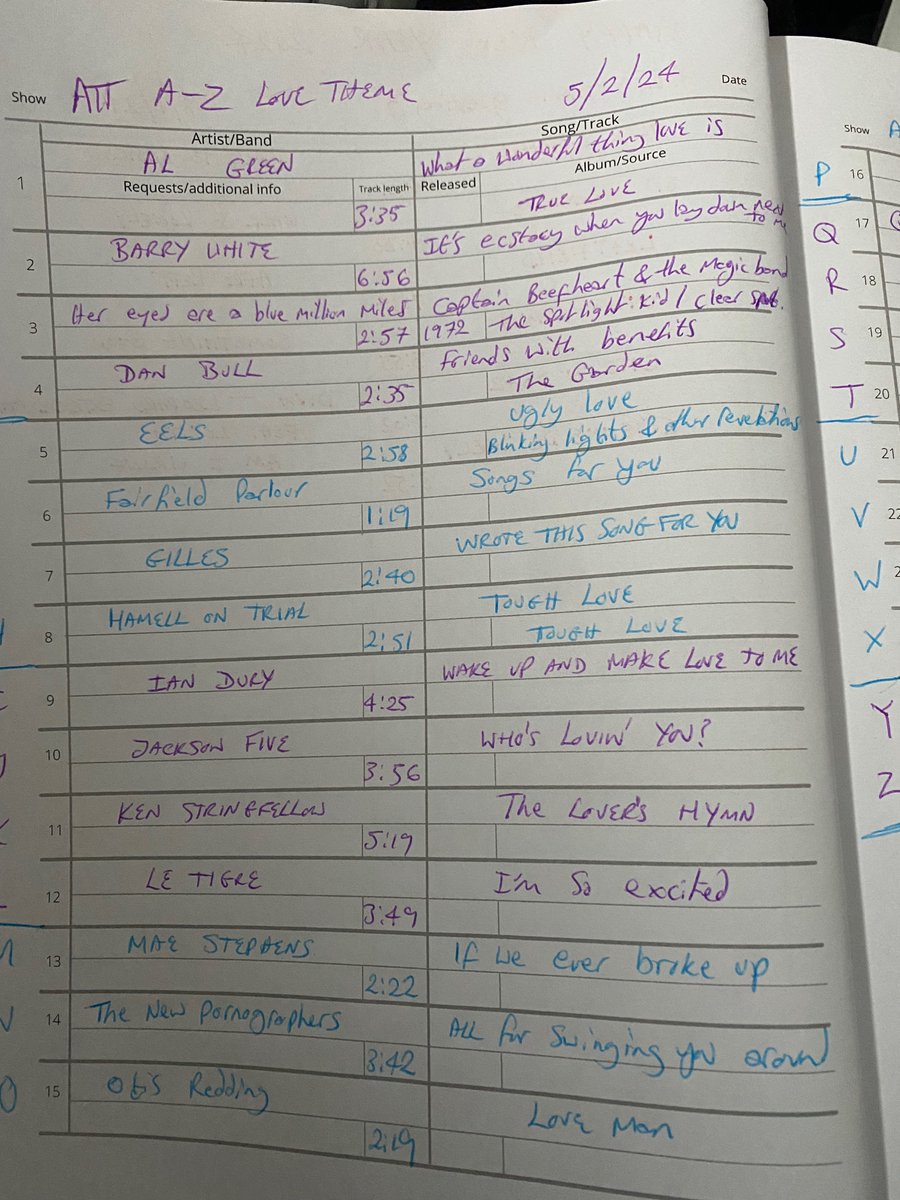 Show ATT A-Z LOVE THEME 5/2/24 Date
Artist/Band Song/Track
1 AL GREEN What a wonderful thing love is
Requests/additional info Track length Released Album/Source
3:35 TRUE LOVE
2 BARRY WHITE It's ecstacy when you lay down next to me
6:56
3 Her eyes are a blue million miles Captain Beefheart & the Magic band
2:57 1972 The spotlight kid / clear spot
4 DAN BULL friends with benefits
2:35 The Garden
5 EELS Ugly love
2:58 Blinking lights & other revelations
6 Fairfield Parlour Songs for you
1:19
7 GILLES WROTE THIS SONG FOR YOU
2:40
8 HAMELL ON TRIAL TOUGH LOVE
2:51 TOUGH LOVE
9 IAN DURY WAKE UP AND MAKE LOVE TO ME
4:25
10 JACKSON FIVE WHO'S LOVIN' YOU?
3:56
11 KEN STRINGFELLOW The LOVER'S HYMN
5:19
12 LE TIGRE I'm So excited
3:49
13 MAE STEPHENS If we ever broke up
2:22
14 The New Pornographers All for swinging you around
3:42
15 Otis Redding Love Man
2:19
Show A
P 16
Q 17
R 18
S 19
T 20
U 21
V 22
W 2
X
Y
Z